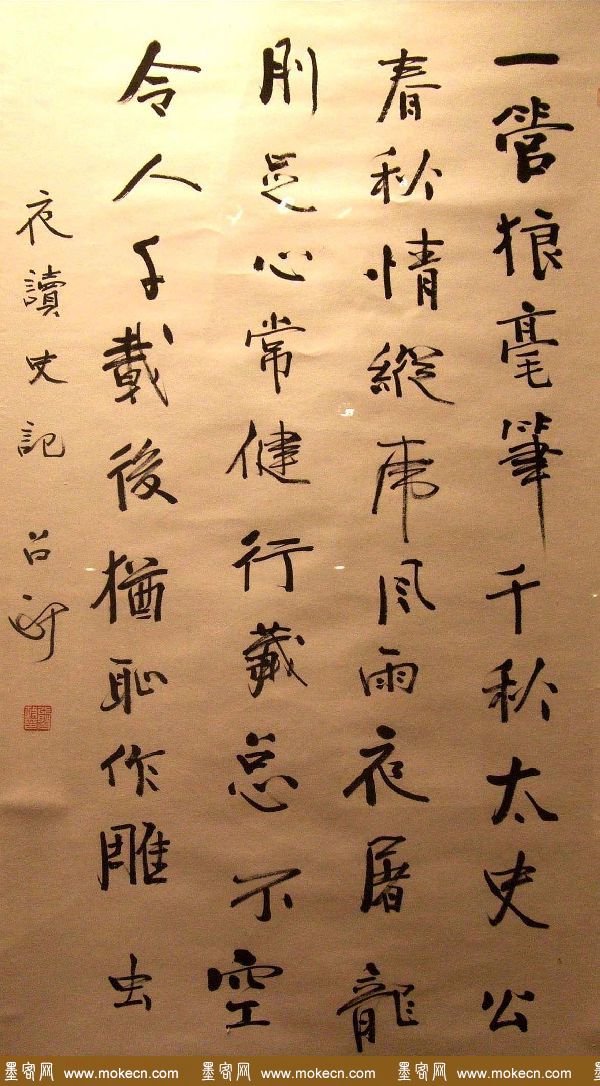 一管狼毫筆千秋太史公
春秋情縱虎风雨夜屠龍
刖足心常健行藏总不空
令人千載後猶恥作雕虫
夜讀史記
墨客网 www.mokecn.com 墨客网 www.mokecn.com 墨客网 www.mokecn.com 墨客网